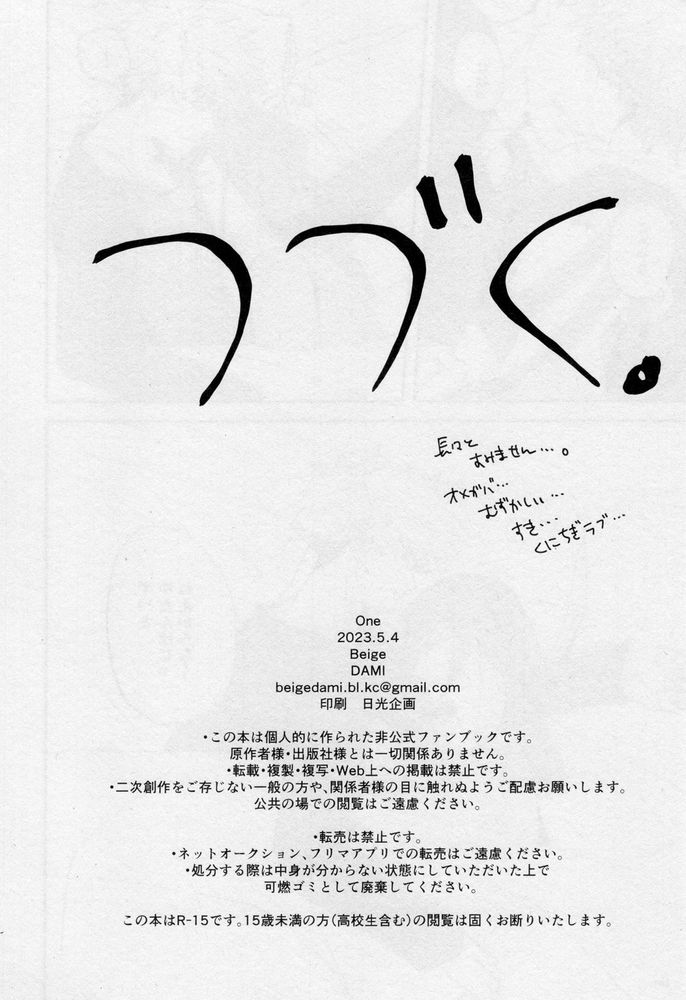 つづく。
長々と
すみません…。
オメガバ…
むずかしい…
すき…
くにちぎラブ…
One
2023.5.4
Beige
DAMI
beigedami.bl.kc@gmail.com
印刷　日光企画
・この本は個人的に作られた非公式ファンブックです。
原作者様・出版社様とは一切関係ありません。
・転載・複製・複写・Web上への掲載は禁止です。
・二次創作をご存じない一般の方や、関係者様の目に触れぬようご配慮お願いします。
公共の場での閲覧はご遠慮ください。
・転売は禁止です。
・ネットオークション、フリマアプリでの転売はご遠慮ください。
・処分する際は中身が分からない状態にしていただいた上で
可燃ゴミとして廃棄してください。
この本はR-15です。15歳未満の方(高校生含む)の閲覧は固くお断りいたします。